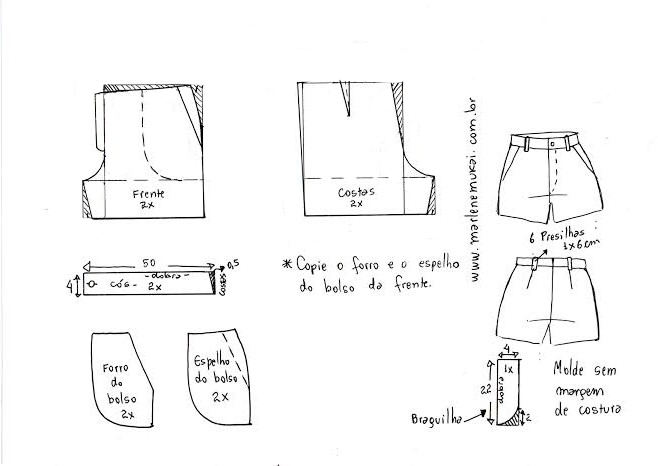 Frente
2x
Costas
2x
www.marlenemukai.com.br
6 Presilhas
1x6cm
50
0,5
4
cós
dobra
2x
costas
* Copie o forro e o espelho
do bolso da frente.
Forro
do
bolso
2x
Espelho
do bolso
2x
4
1x
dobra
22
2
Braguilha
Molde sem
margem
de costura